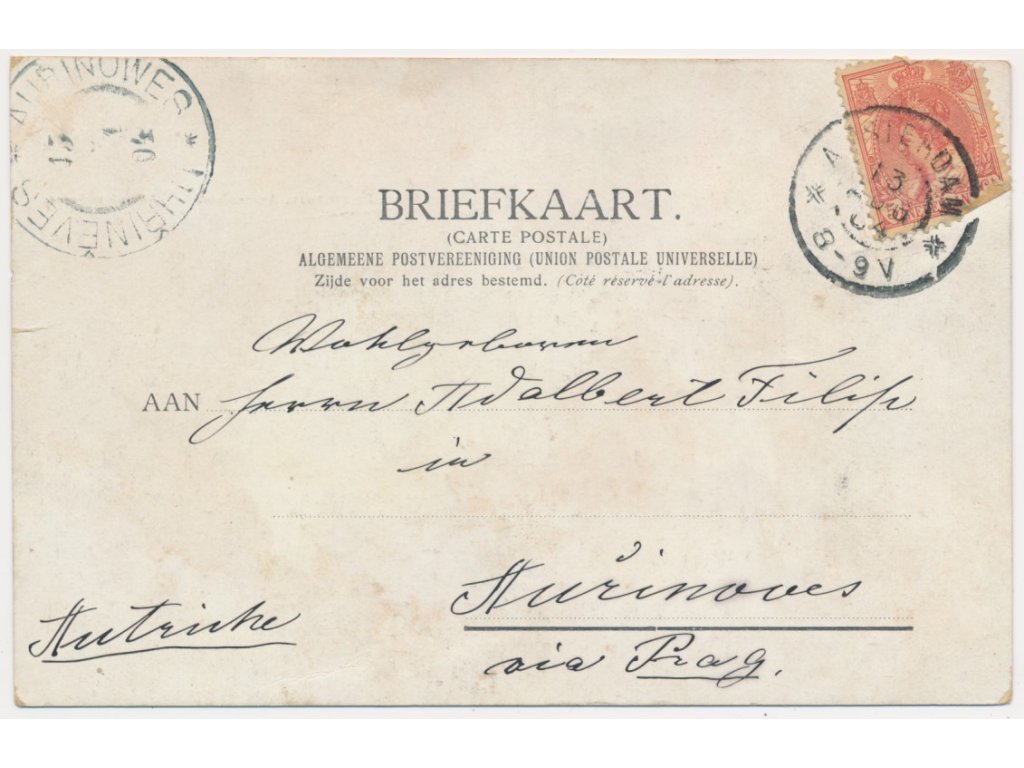 AURINOWES * UHŘINĚVES *
AMSTERDAM
13
8-9V
BRIEFKAART.
(CARTE POSTALE)
ALGEMEENE POSTVEREENIGING (UNION POSTALE UNIVERSELLE)
Zijde voor het adres bestemd. (Côté réservé à l'adresse).
Wohlgeboren
AAN Herrn Adalbert Filip
in
Auřinoves
Autriche
via Prag.